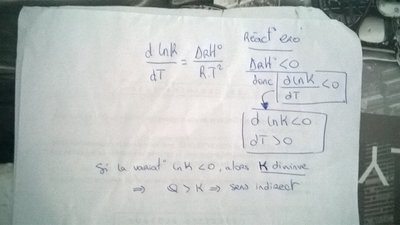 Réact° exo
d lnK / dT = ΔRH° / RT²
ΔRH° < 0
donc d lnK / dT < 0
d lnK < 0
dT > 0
Si la variat° lnK < 0, alors K diminue
⇒ Q > K ⇒ sens indirect